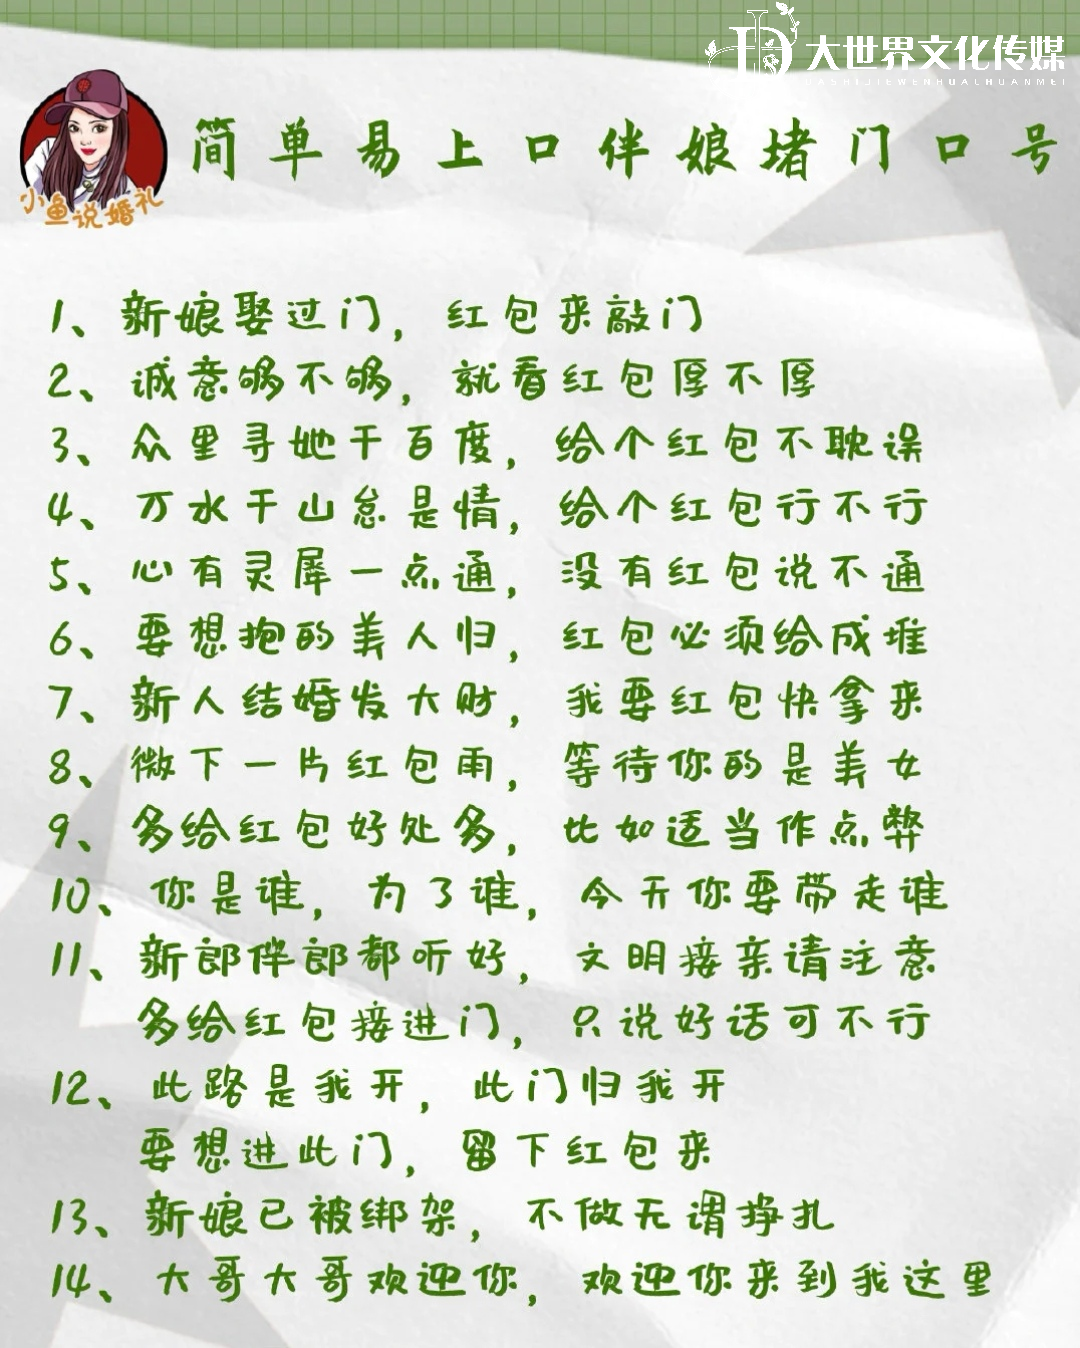 大世界文化传媒
DASHIJIEWENHUACHUANMEI
小鱼说婚礼
简单易上口伴娘堵门口号
1、新娘娶过门，红包来敲门
2、诚意够不够，就看红包厚不厚
3、众里寻她千百度，给个红包不耽误
4、万水千山怠是情，给个红包行不行
5、心有灵犀一点通，没有红包说不通
6、要想抱的美人归，红包必须给成堆
7、新人结婚发大财，我要红包快拿来
8、微下一片红包雨，等待你的是美女
9、多给红包好处多，比如适当作点弊
10、你是谁，为了谁，今天你要带走谁
11、新郎伴郎都听好，文明接亲请注意
多给红包接进门，只说好话可不行
12、此路是我开，此门归我开
要想进此门，留下红包来
13、新娘已被绑架，不做无谓挣扎
14、大哥大哥欢迎你，欢迎你来到我这里